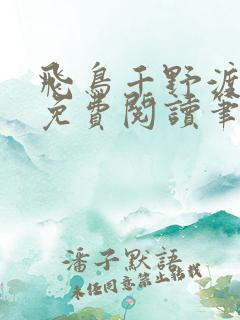 飛鳥于野渡
免費閱讀筆
潘子默語
未經同意禁止轉載